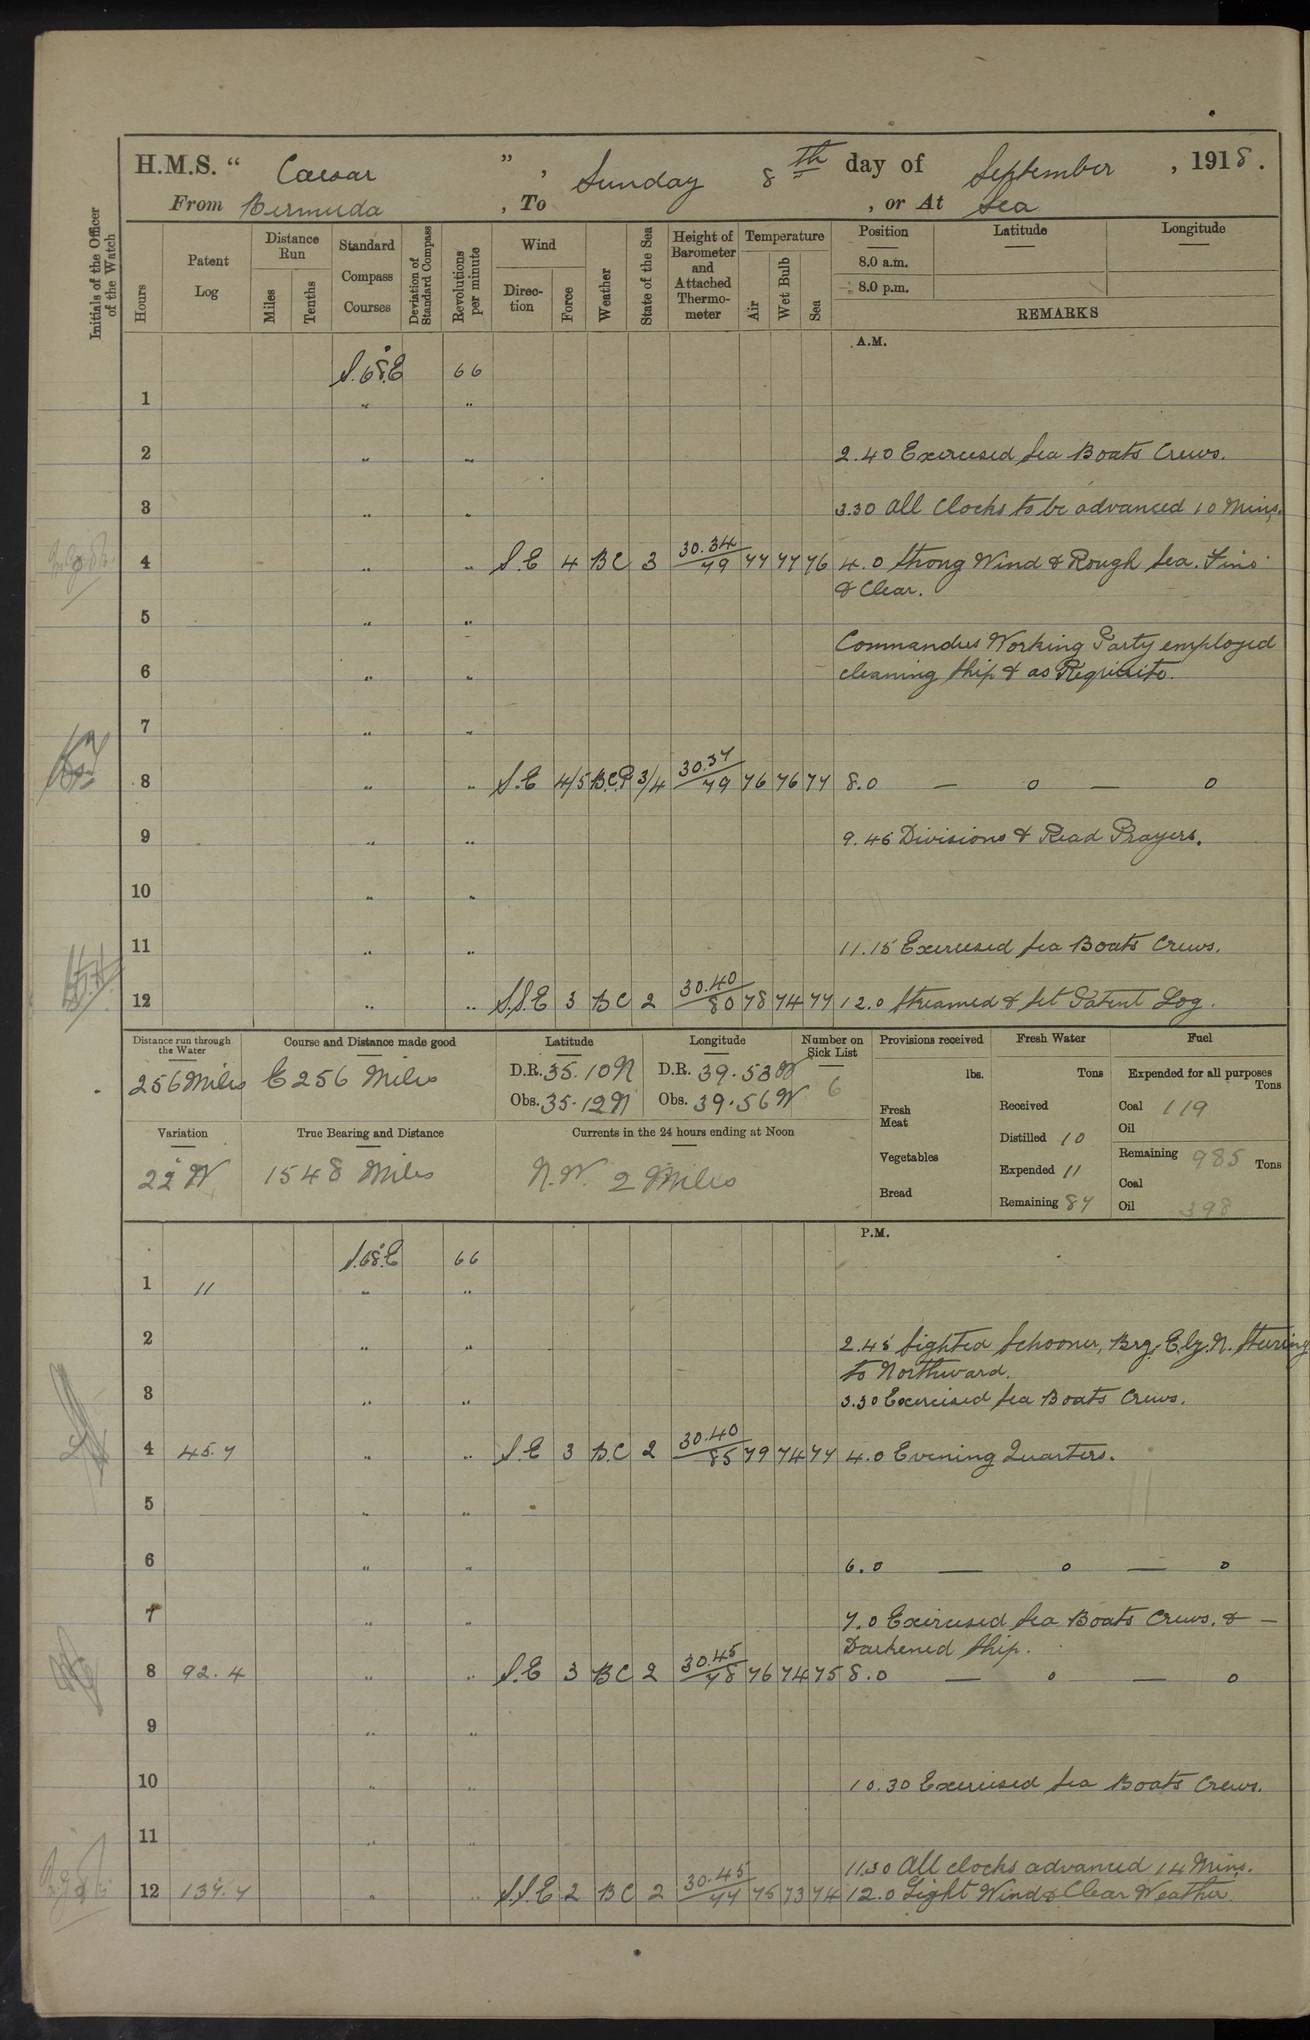 H.M.S. “ Caesar ” , Sunday 8th day of September , 1918 .
From Bermuda , To , or At Sea
Initials of the Officer of the Watch
Hours
Patent Log
Distance Run
Miles
Tenths
Standard Compass Courses
Deviation of Standard Compass
Revolutions per minute
Wind
Direc- tion
Force
Weather
State of the Sea
Height of Barometer and Attached Thermo- meter
Temperature
Air
Wet Bulb
Sea
Position
8.0 a.m.
8.0 p.m.
Latitude
Longitude
REMARKS
A.M.
S.68°.E 66
1 „ „
2 „ „ 2.40 Exercised Sea Boats Crews.
3 „ „ 3.30 All Clocks to be advanced 10 Mins.
4 „ „ S.E 4 BC 3 30.34/79 77 77 76 4.0 Strong Wind & Rough Sea. Fine
& Clear.
5 „ „
Commanders Working Party employed
6 „ „ cleaning Ship & as Requisite.
7 „ „
8 „ „ S.E 4/5 B.C.P. 3/4 30.37/79 76 76 77 8.0 — o — o
9 „ „ 9.45 Divisions & Read Prayers.
10 „ „
11 „ „ 11.15 Exercised Sea Boats Crews.
12 „ „ S.S.E 3 BC 2 30.40/80 78 74 77 12.0 Streamed & Set Patent Log.
Distance run through the Water
256 Miles
Course and Distance made good
E 256 Miles
Latitude
D.R. 35.10 N
Obs. 35.12 N
Longitude
D.R. 39.53 W
Obs. 39.56 W
Number on Sick List
6
Provisions received
lbs.
Fresh Meat
Vegetables
Bread
Fresh Water
Tons
Received
Distilled 10
Expended 11
Remaining 87
Fuel
Expended for all purposes
Tons
Coal 119
Oil
Remaining 985 Tons
Coal
Oil 398
Variation
22° W
True Bearing and Distance
1548 Miles
Currents in the 24 hours ending at Noon
N.W. 2 Miles
P.M.
S.68°.E 66
1 11 „ „
2 „ „ 2.45 Sighted Schooner, Brg. E.by.N. Steering
to Northward.
3 „ „ 3.30 Exercised Sea Boats Crews.
4 45.7 „ „ S.E 3 B.C 2 30.40/85 79 74 77 4.0 Evening Quarters.
5 „ „
6 „ „ 6.0 — o — o
7 „ „ 7.0 Exercised Sea Boats Crews. & —
Darkened Ship.
8 92.4 „ „ S.E 3 BC 2 30.45/78 76 74 75 8.0 — o — o
9 „ „
10 „ „ 10.30 Exercised Sea Boats Crews.
11 „ „
11.30 All clocks advanced 14 Mins.
12 137.7 „ „ S.S.E 2 BC 2 30.45/77 75 73 74 12.0 Light Wind & Clear Weather